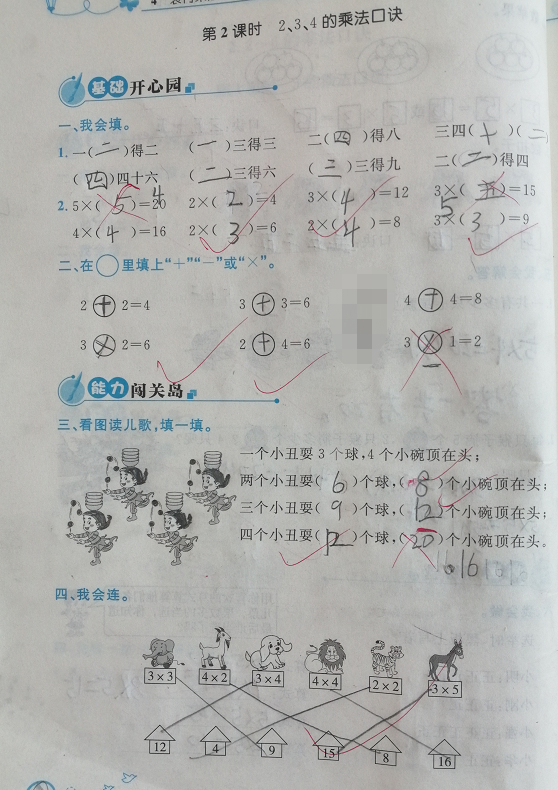 第2课时 2、3、4的乘法口诀
基础 开心园
一、我会填。
1. 一(二)得二 (一)三得三 二(四)得八 三四(十)(二
(四)四十六 (二)三得六 (三)三得九 二(二)得四
2. 5×(5)=20 4 2×(2)=4 3×(4)=12 3×(五)=15 5
4×(4)=16 2×(3)=6 2×(4)=8 3×(3)=9
二、在○里填上“+”“−”或“×”。
2+2=4 3+3=6 4+4=8
3×2=6 2+4=6 3×1=2 −
能力 闯关岛
三、看图读儿歌,填一填。
一个小丑耍3个球,4个小碗顶在头;
两个小丑耍(6)个球,(8)个小碗顶在头;
三个小丑耍(9)个球,(12)个小碗顶在头;
四个小丑耍(12)个球,(20)个小碗顶在头。
16 16 16
四、我会连。
3×3 4×2 3×4 4×4 2×2 3×5
12 4 9 15 8 16